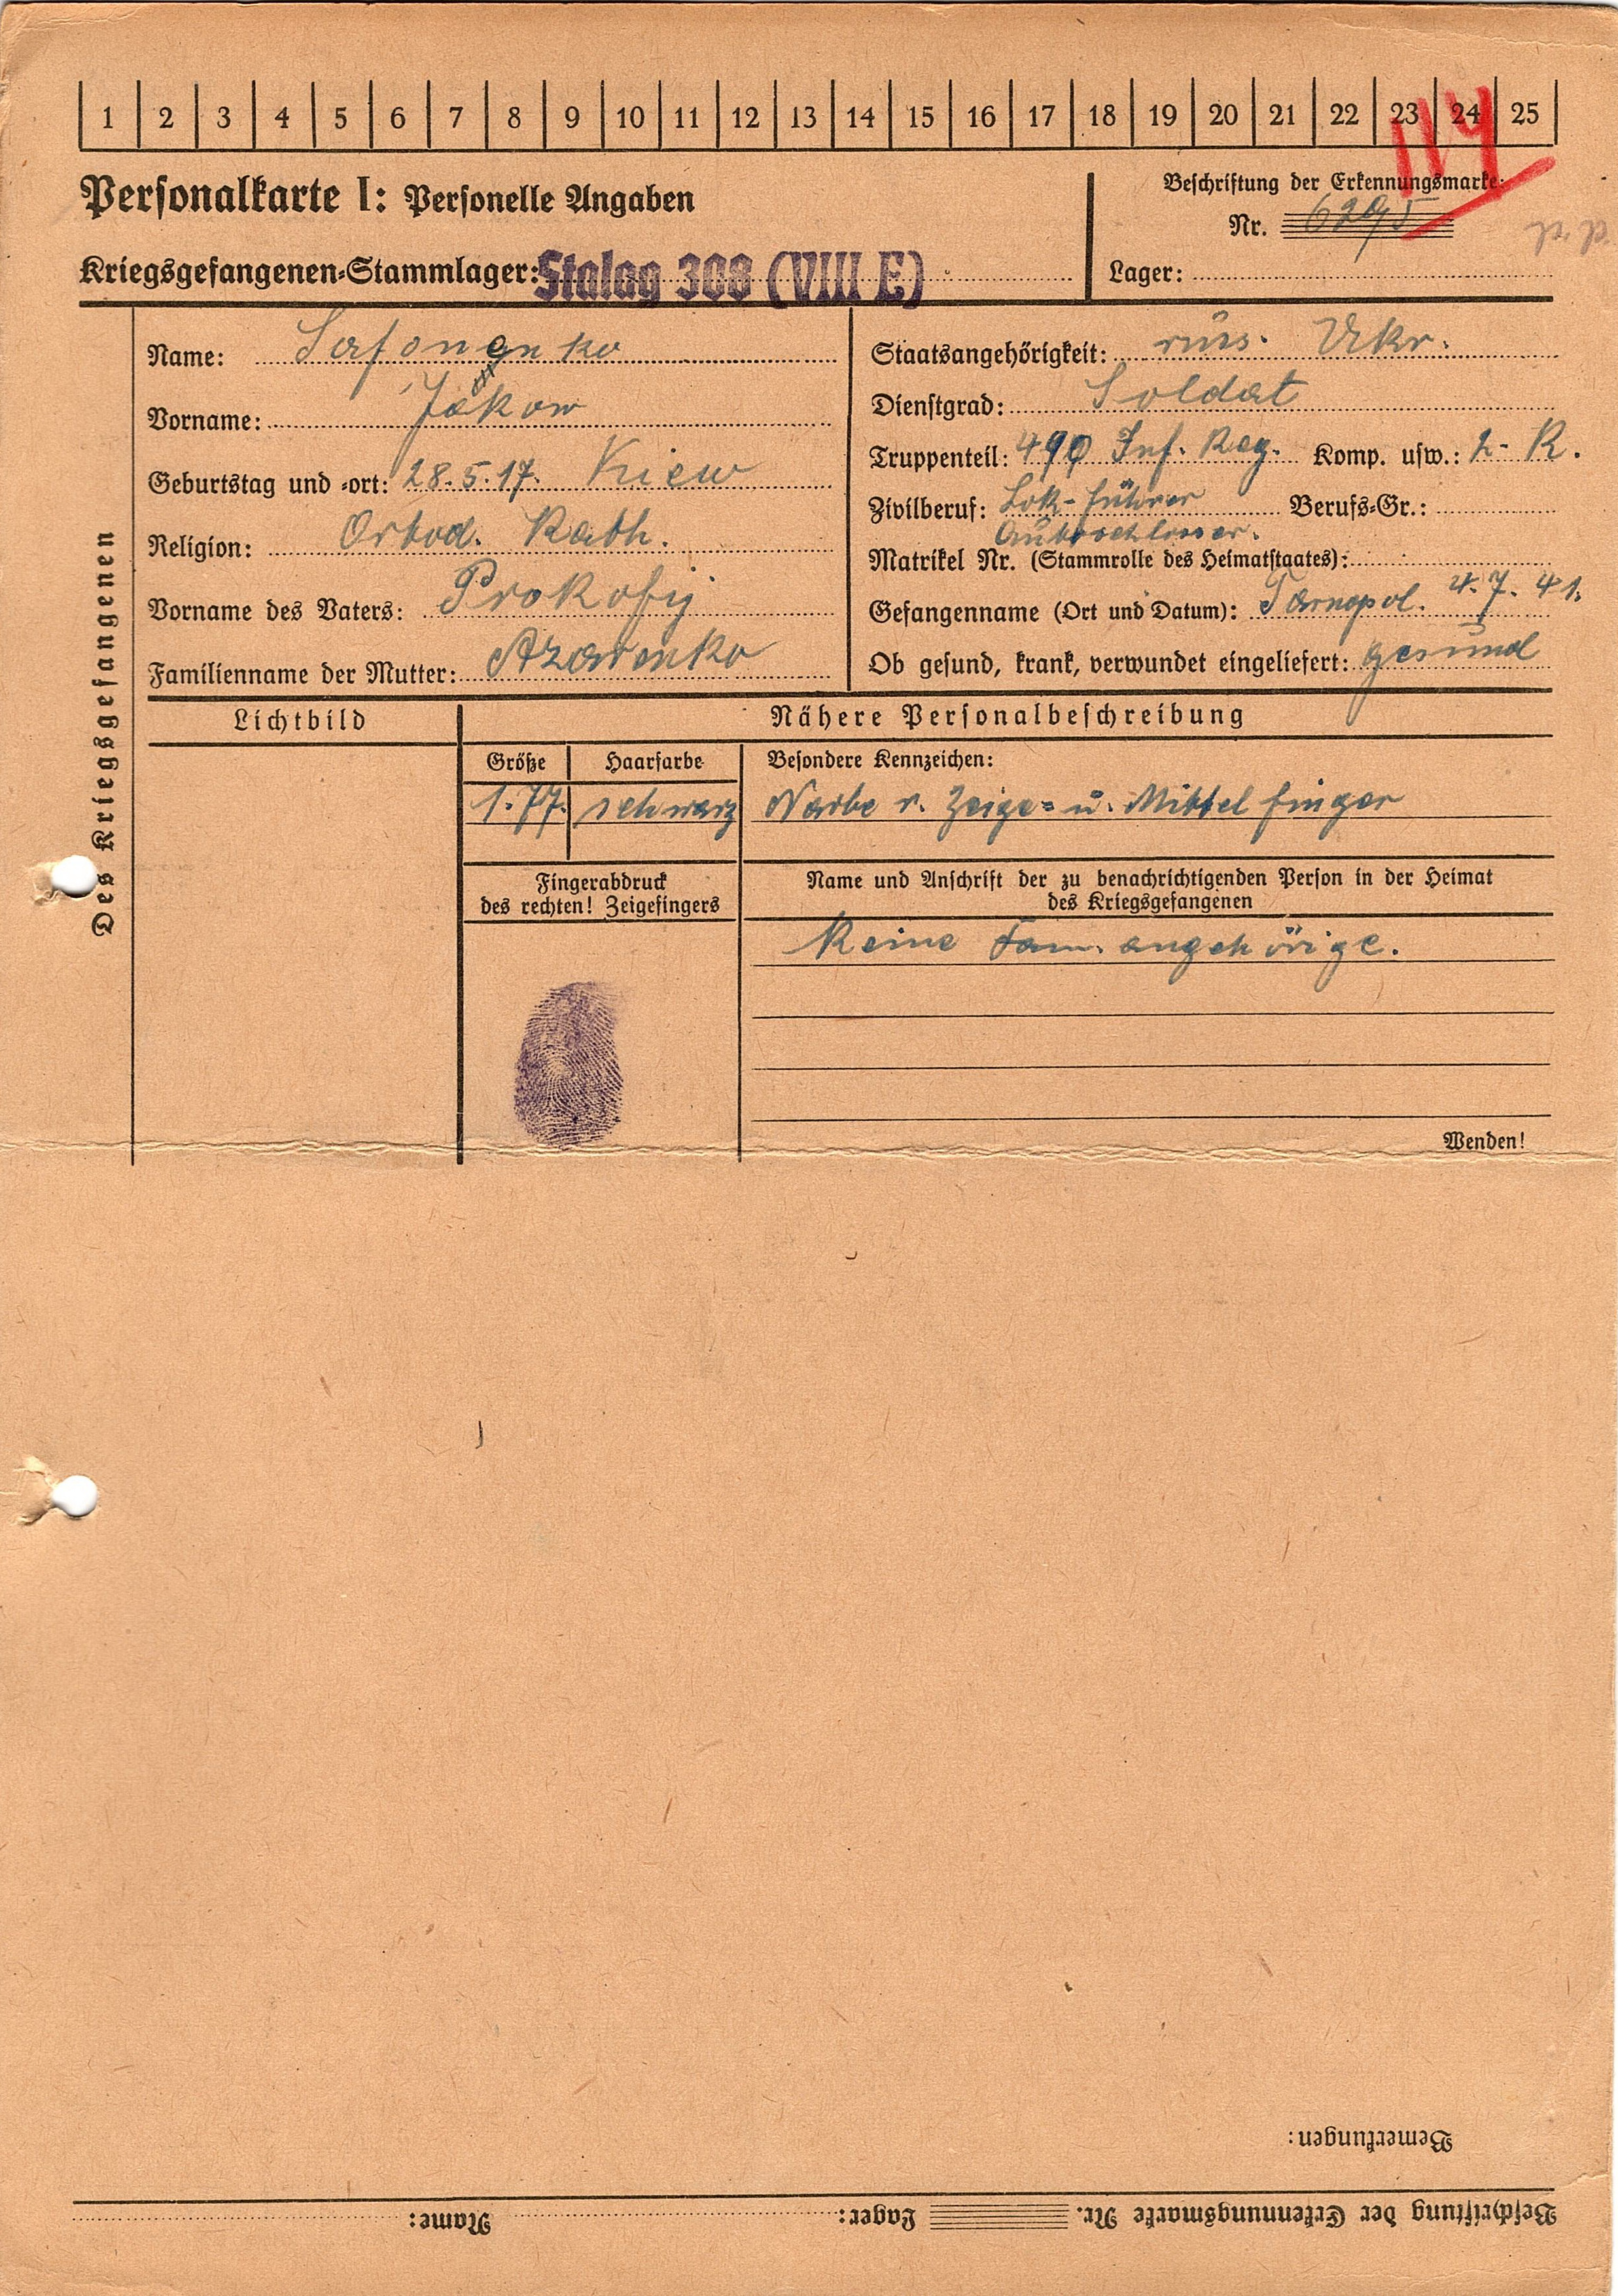 1 2 3 4 5 6 7 8 9 10 11 12 13 14 15 16 17 18 19 20 21 22 23 24 25
114
Personalkarte I: Personelle Angaben
Beschriftung der Erkennungsmarke:
Nr. 6295
Kriegsgefangenen-Stammlager: Stalag 308 (VIII E)
Lager:
Des Kriegsgefangenen
Name: Safonenko
Vorname: Jakow
Geburtstag und -ort: 28.5.17. Kiew
Religion: Ortod. Kath.
Vorname des Vaters: Prokofij
Familienname der Mutter: Azarenko
Staatsangehörigkeit: rus. Ukr.
Dienstgrad: Soldat
Truppenteil: 490 Inf. Reg. Komp. usw.: 2- K.
Zivilberuf: Lok-führer Berufs-Gr.:
Autoschlosser.
Matrikel Nr. (Stammrolle des Heimatstaates):
Gefangenname (Ort und Datum): Tarnopol. 4.7.41.
Ob gesund, krank, verwundet eingeliefert: gesund
Lichtbild
Nähere Personalbeschreibung
Größe Haarfarbe Besondere Kennzeichen:
1.77. schwarz Narbe r. Zeige= u. Mittelfinger
Fingerabdruck
des rechten! Zeigefingers
Name und Anschrift der zu benachrichtigenden Person in der Heimat
des Kriegsgefangenen
Keine Fam. angehörige.
Wenden!
Bemerkungen:
Beschriftung der Erkennungsmarke Nr. Lager: Name: